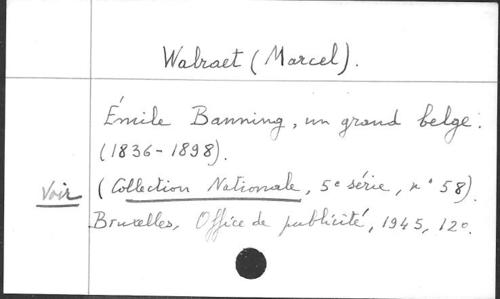 Walraet (Marcel).
Émile Banning, un grand belge.
(1836-1898).
Voir (Collection Nationale, 5e série, n° 58).
Bruxelles, Office de publicité, 1945, 12°.